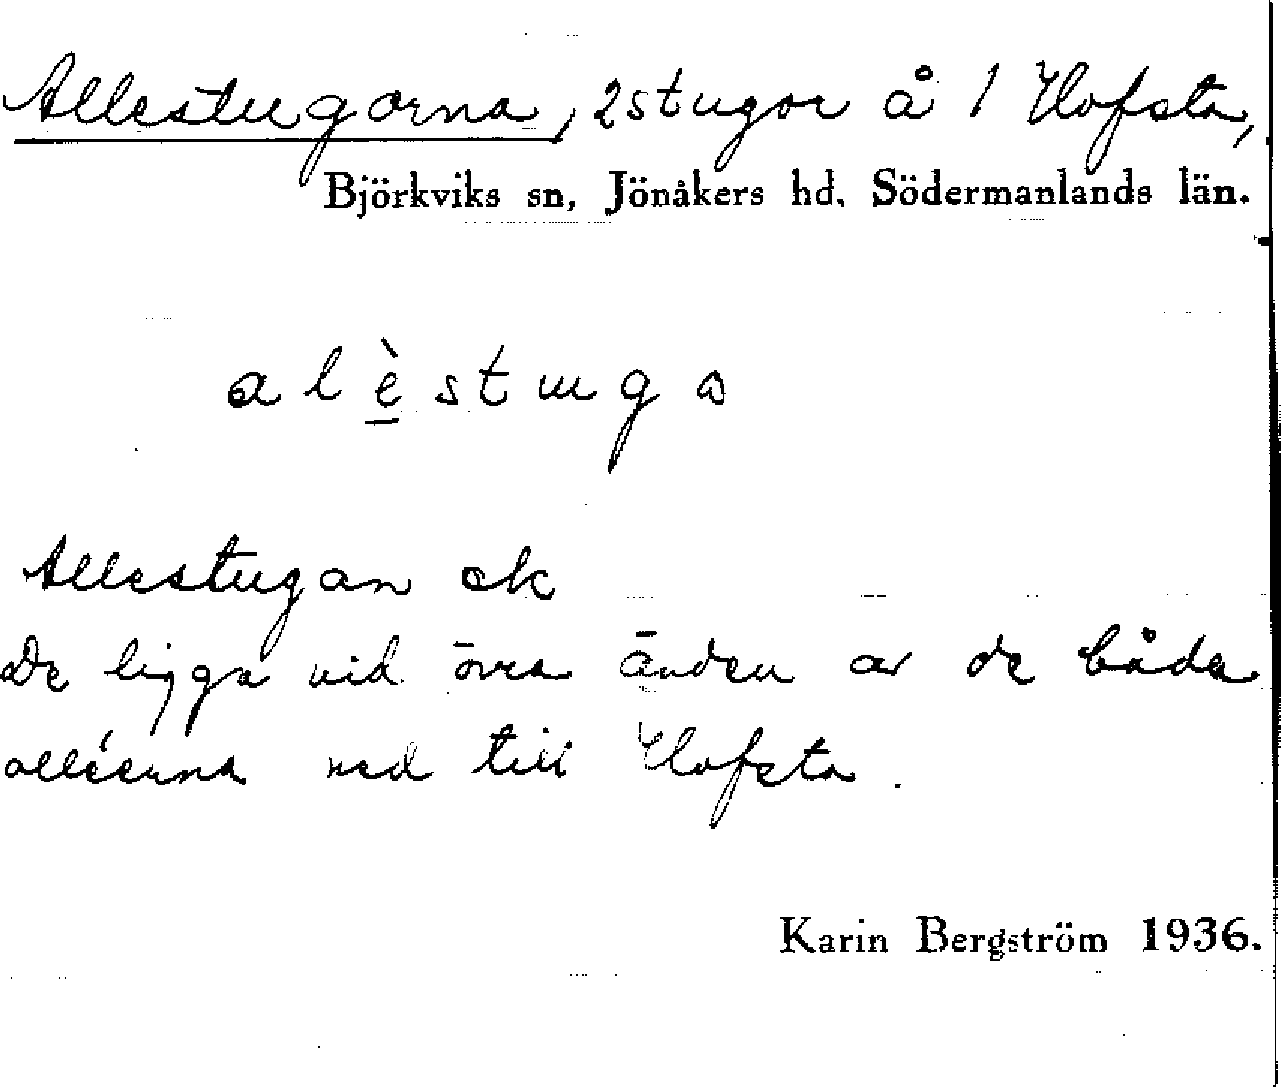 Allestugorna, 2 stugor å 1 Hofsta,
Björkviks sn, Jönåkers hd, Södermanlands län.
alèstuga
Allestugan ek
De ligga vid övra änden av de båda
alléerna ned till Hofsta.
Karin Bergström 1936.